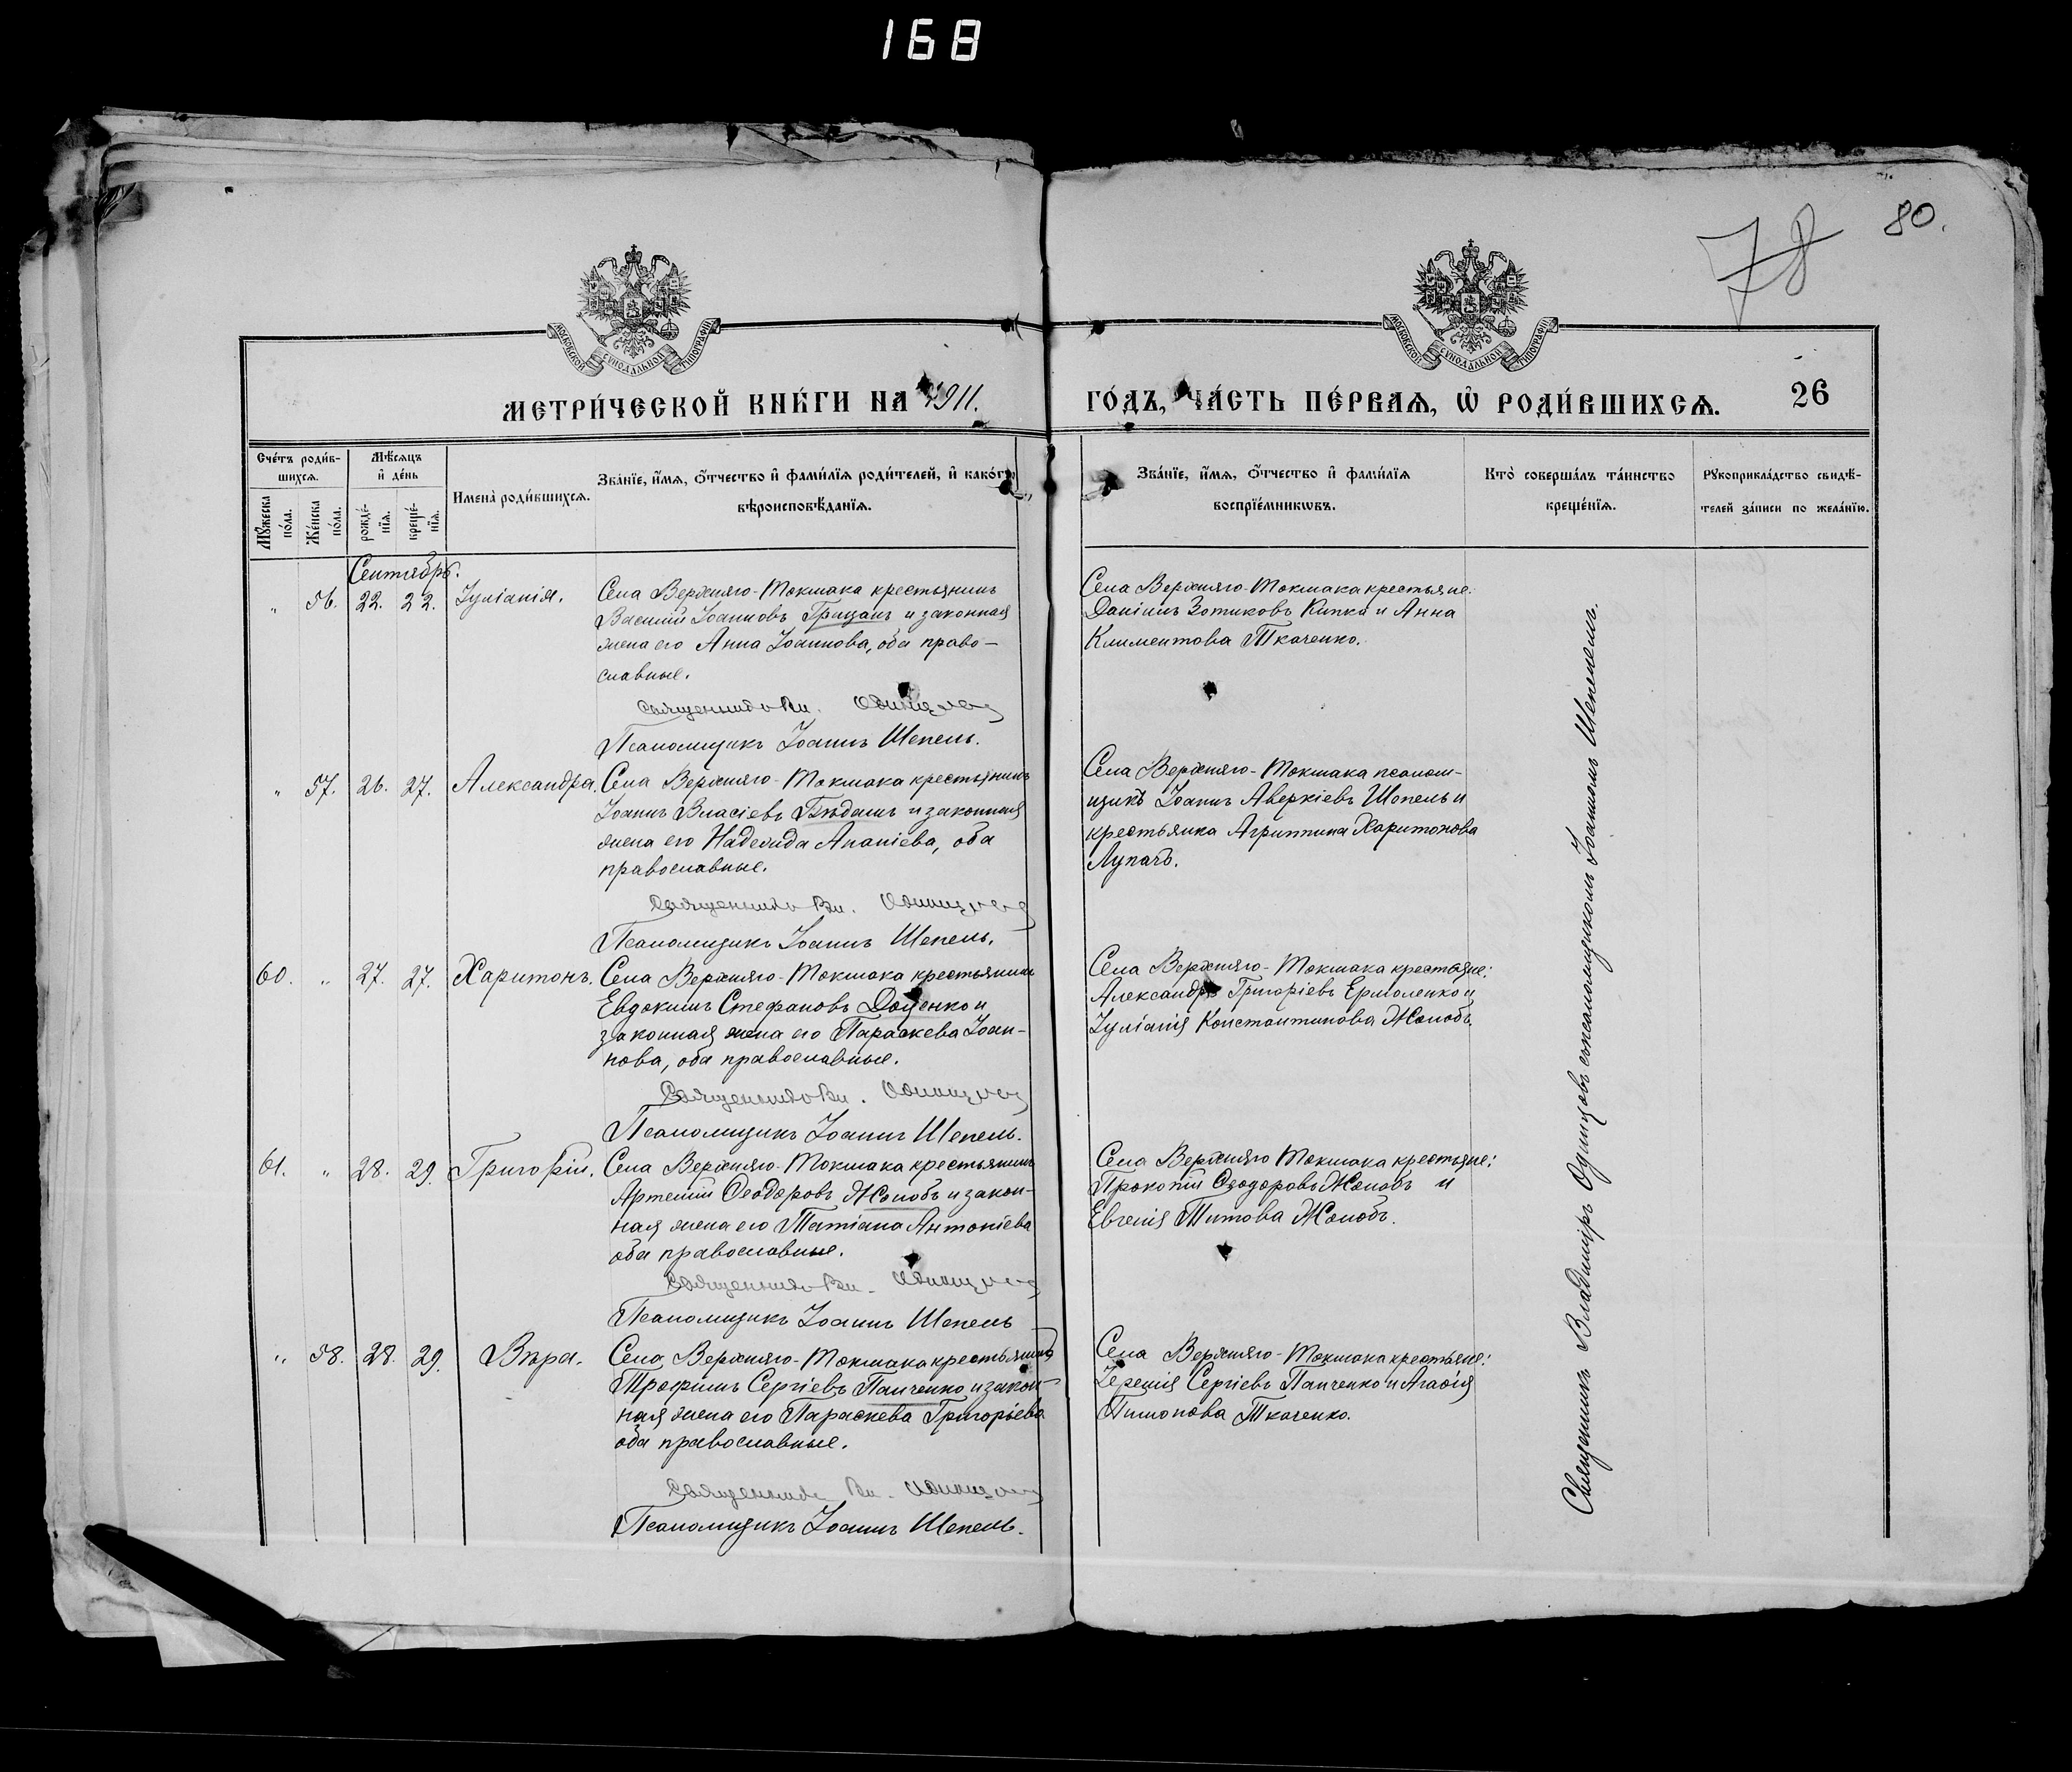 168
78
80.
МОСКОВСКОЙ СУНОДАЛЬНОЙ ТИПОГРАФІИ
МОСКОВСКОЙ СУНОДАЛЬНОЙ ТИПОГРАФІИ
МЕТРИ́ЧЕСКОЙ КНИ́ГИ НА 1911.
ГО́ДЪ, ЧА́СТЬ ПЕ́РВАѦ, Ѡ҆ РОДИ́ВШИХСѦ.
26
Сче́тъ роди́в-
шихсѧ.
Мѣ́сѧцъ
и҆ де́нь
Мꙋ́жеска
по́ла.
Же́нска
по́ла.
рожде́-
нїѧ.
креще́-
нїѧ.
Имена̀ роди́вшихсѧ.
Зва́нїе, и҆́мѧ, ѻ҆́тчество и҆ фами́лїѧ роди́телей, и҆ како́гѡ
вѣроисповѣ́данїѧ.
Зва́нїе, и҆́мѧ, ѻ҆́тчество и҆ фами́лїѧ
воспрїе́мникѡвъ.
Кто̀ соверша́лъ та́инство
креще́нїѧ.
Рꙋкоприкла́дство свидѣ́-
телей за́писи по жела́нїю.
Сентябрь.
„ 56. 22. 22. Іуліанія.
Села Верхняго-Токмака крестьянинъ
Василій Іоанновъ Грицанъ и законная
жена его Анна Іоаннова, оба право-
славные.
Священникъ Вл. Одинцовъ
Псаломщикъ Іоаннъ Шепель.
Села Верхняго-Токмака крестьяне:
Даніилъ Зотиковъ Кипка и Анна
Климентова Ткаченко.
„ 57. 26. 27. Александра.
Села Верхняго-Токмака крестьянинъ
Іоаннъ Власіевъ Бѣданъ и законная
жена его Надежда Ананіева, оба
православные.
Священникъ Вл. Одинцовъ
Псаломщикъ Іоаннъ Шепель.
Села Верхняго-Токмака псалом-
щикъ Іоаннъ Аверкіевъ Шепель и
крестьянка Агриппина Харитонова
Лупачъ.
60. „ 27. 27. Харитонъ.
Села Верхняго-Токмака крестьянинъ
Евдокимъ Стефановъ Доценко и
законная жена его Параскева Іоан-
нова, оба православные.
Священникъ Вл. Одинцовъ
Псаломщикъ Іоаннъ Шепель.
Села Верхняго-Токмака крестьяне:
Александръ Григоріевъ Ермоленко и
Іуліанія Константинова Жолобъ.
61. „ 28. 29. Григорій.
Села Верхняго-Токмака крестьянинъ
Артемій Ѳеодоровъ Жолобъ и закон-
ная жена его Татіана Антоніева
оба православные.
Священникъ Вл. Одинцовъ
Псаломщикъ Іоаннъ Шепель
Села Верхняго Токмака крестьяне:
Прокопій Ѳеодоровъ Жолобъ и
Евгенія Титова Жолобъ.
„ 58. 28. 29. Вѣра.
Села Верхняго-Токмака крестьянинъ
Трофимъ Сергіевъ Панченко и закон-
ная жена его Параскева Григорьева
оба православные.
Священникъ Вл. Одинцовъ
Псаломщикъ Іоаннъ Шепель.
Села Верхняго-Токмака крестьяне:
Іеремія Сергіевъ Панченко и Агафія
Пимонова Ткаченко.
Священникъ Владиміръ Одинцовъ съ псаломщикомъ Іоанномъ Шепелемъ.